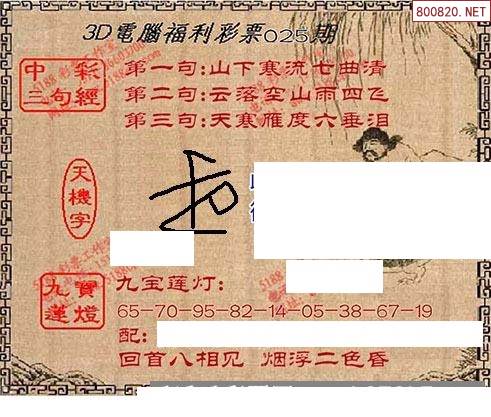 800820.NET
3D電腦福利彩票025期
中彩三句經
第一句:山下寒流七曲清
第二句:云落空山雨四飞
第三句:天寒雁度六垂泪
天機字
九寶蓮燈
九宝莲灯:
65-70-95-82-14-05-38-67-19
配:
回首八相见 烟浮二色昏